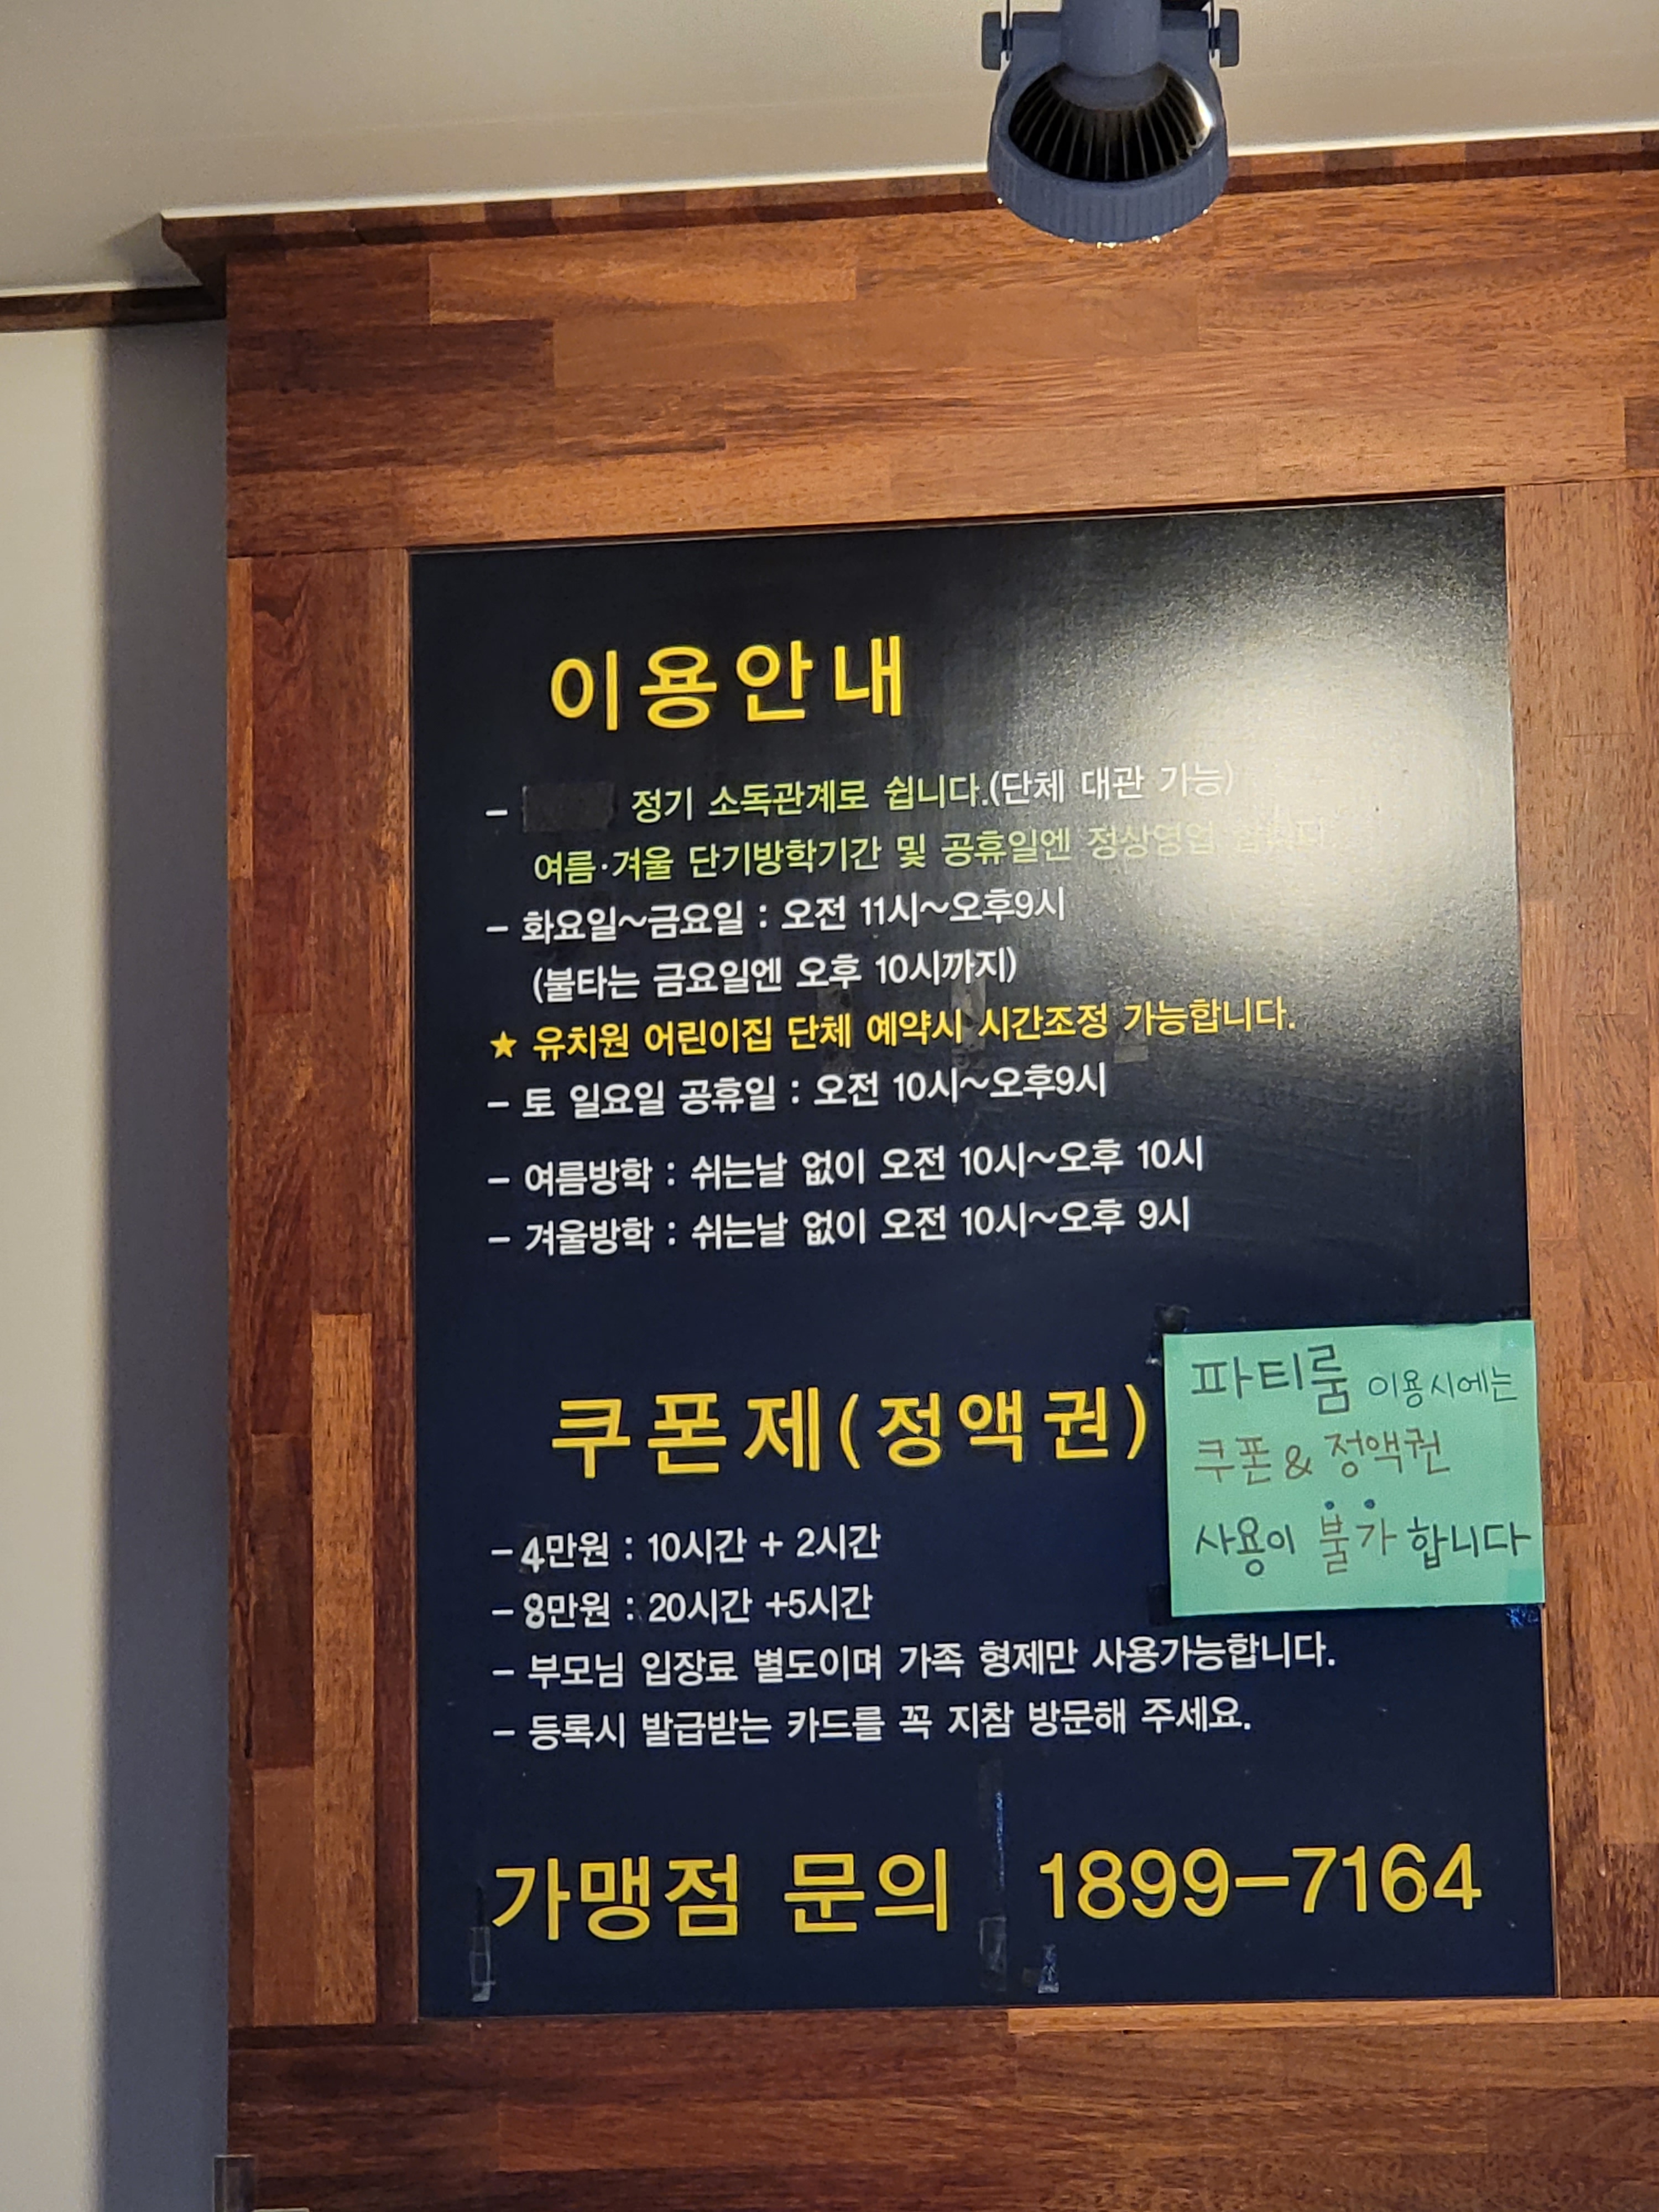 이용안내
- 정기 소독관계로 쉽니다.(단체 대관 가능)
여름·겨울 단기방학기간 및 공휴일엔 정상영업 합니다.
- 화요일~금요일 : 오전 11시~오후9시
(불타는 금요일엔 오후 10시까지)
★ 유치원 어린이집 단체 예약시 시간조정 가능합니다.
- 토 일요일 공휴일 : 오전 10시~오후9시
- 여름방학 : 쉬는날 없이 오전 10시~오후 10시
- 겨울방학 : 쉬는날 없이 오전 10시~오후 9시
쿠폰제(정액권)
파티룸 이용시에는
쿠폰 & 정액권
사용이 불가합니다
- 4만원 : 10시간 + 2시간
- 8만원 : 20시간 +5시간
- 부모님 입장료 별도이며 가족 형제만 사용가능합니다.
- 등록시 발급받는 카드를 꼭 지참 방문해 주세요.
가맹점 문의 1899-7164